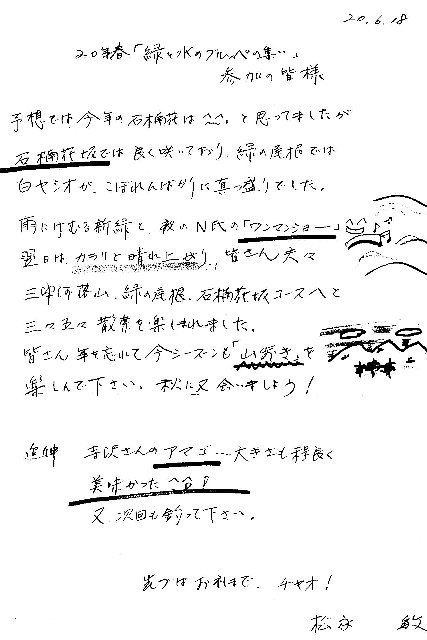 20.6.18
20年春「緑と水のブルーベの集い」
参加の皆様
予想では今年の石楠花は^^。と思ってましたが
石楠花坂では良く咲いており、緑の尾根では
白ヤシオが、こぼれんばかりに真っ盛りでした。
雨にけむる新緑と、夜のN氏の「ワンマンショー」
翌日は、カラリと晴れ上がり、皆さん夫々
緑の尾根、石楠花坂コースへと
三々五々散策を楽しまれました。
皆さん年を忘れて今シーズンも「山歩き」を
楽しんで下さい。秋に又会いましょう！
追伸 寺沢さんのアマゴ…大きさも程良く
美味かった^Q^！
又、次回も釣って下さい。
先づはお礼まで、チャオ！
松永 敏